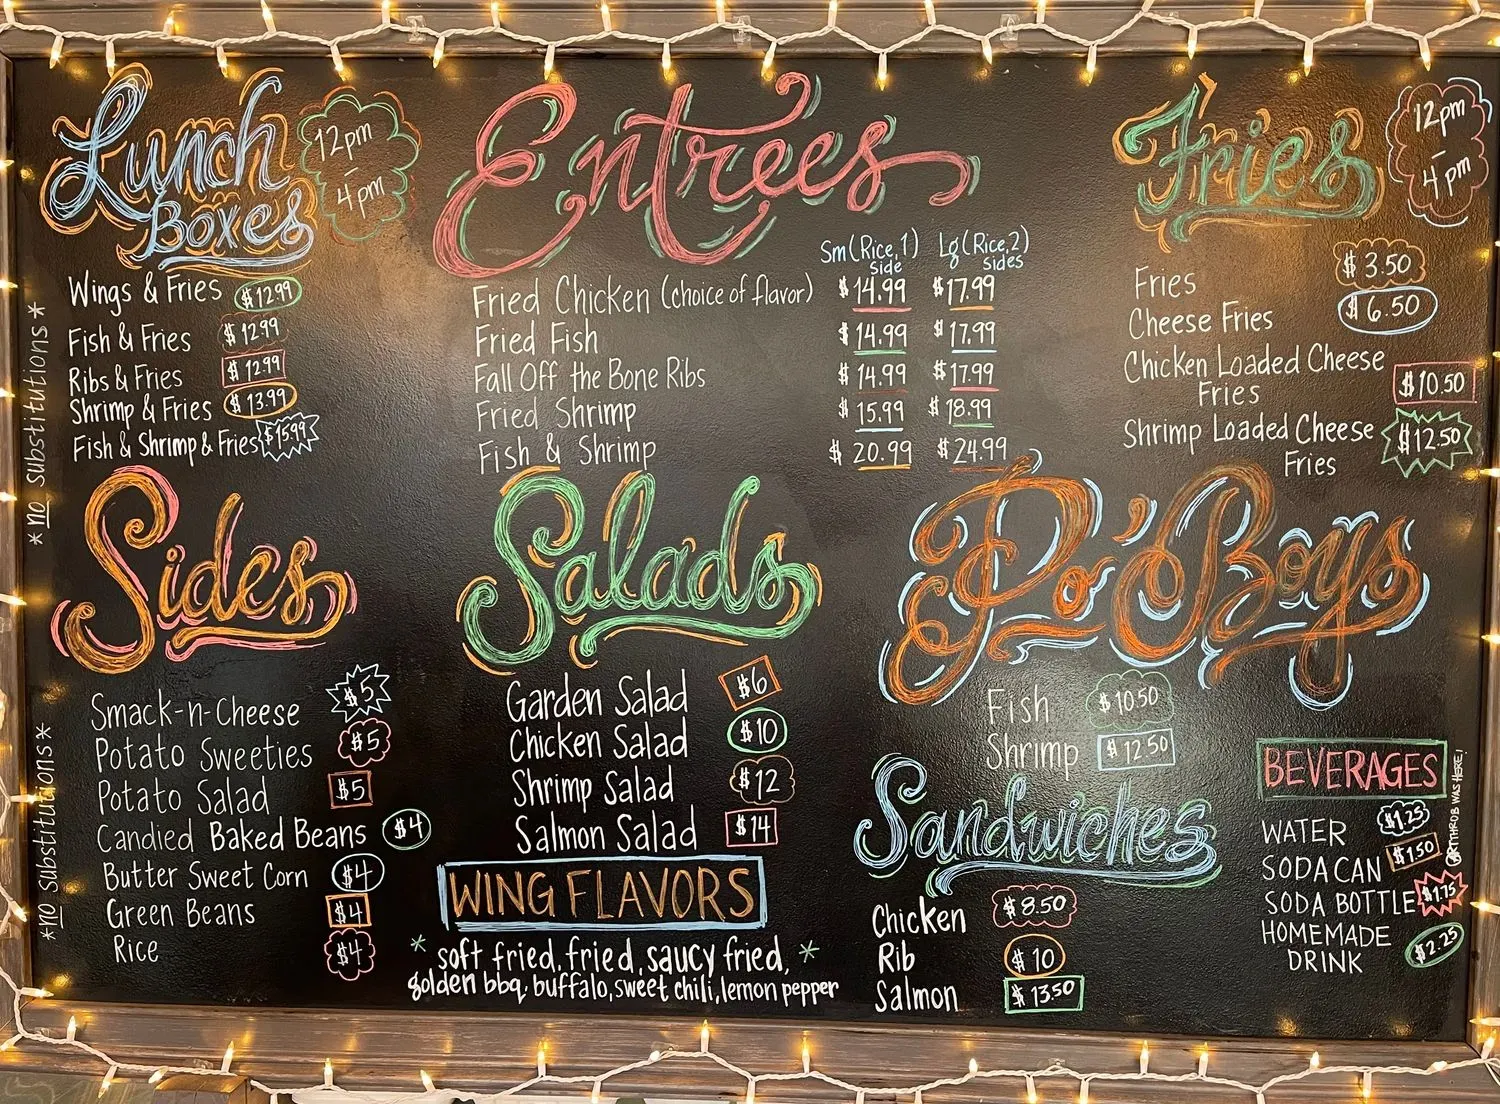 Lunch
Boxes
12pm
-
4pm
Wings & Fries $12.99
Fish & Fries $12.99
Ribs & Fries $12.99
Shrimp & Fries $13.99
Fish & Shrimp & Fries $15.99
*no substitutions*
Entrees
Sm (Rice, 1) side Lg (Rice, 2) sides
Fried Chicken (choice of flavor) $14.99 $17.99
Fried Fish $14.99 $17.99
Fall Off the Bone Ribs $14.99 $17.99
Fried Shrimp $15.99 $18.99
Fish & Shrimp $20.99 $24.99
Fries
12pm
-
4pm
Fries $3.50
Cheese Fries $6.50
Chicken Loaded Cheese
Fries $10.50
Shrimp Loaded Cheese
Fries $12.50
Sides
Smack-n-Cheese $5
Potato Sweeties $5
Potato Salad $5
Candied Baked Beans $4
Butter Sweet Corn $4
Green Beans $4
Rice $4
*no Substitutions*
Salads
Garden Salad $6
Chicken Salad $10
Shrimp Salad $12
Salmon Salad $14
WING FLAVORS
* soft fried, fried, saucy fried, *
golden bbq, buffalo, sweet chili, lemon pepper
Po' Boys
Fish $10.50
Shrimp $12.50
Sandwiches
Chicken $8.50
Rib $10
Salmon $13.50
BEVERAGES
WATER $1.25
SODA CAN $1.50
SODA BOTTLE $1.75
HOMEMADE
DRINK $2.25
WAS HERE!